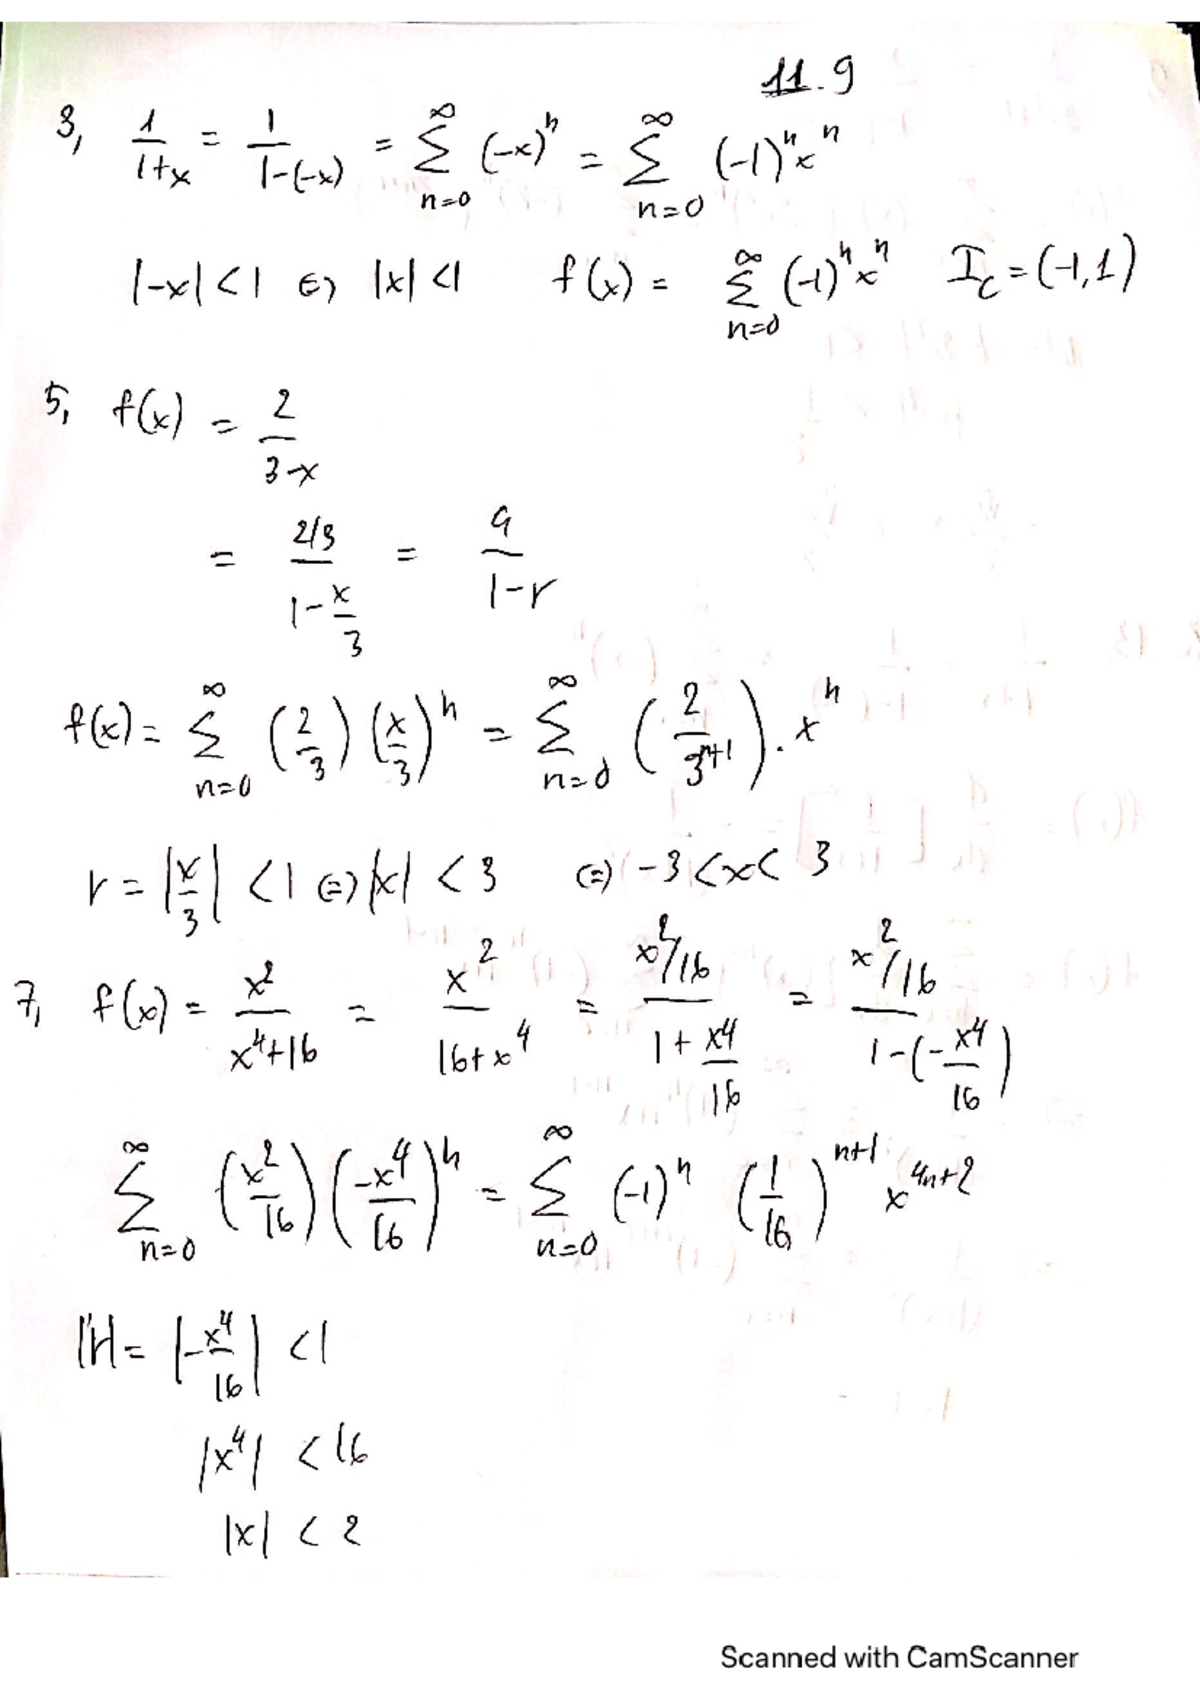 11.9
3, 1/(1+x) = 1/(1-(-x)) = ∑_{n=0}^{∞} (-x)^n = ∑_{n=0}^{∞} (-1)^n x^n
|-x| < 1 ⇔ |x| < 1 f(x) = ∑_{n=0}^{∞} (-1)^n x^n I_c = (-1,1)
5, f(x) = 2/(3-x)
= (2/3)/(1-x/3) = a/(1-r)
f(x) = ∑_{n=0}^{∞} (2/3)(x/3)^n = ∑_{n=0}^{∞} (2/3^{n+1}) . x^n
r = |x/3| < 1 ⇔ |x| < 3 ⇔ -3 < x < 3
7, f(x) = x^2/(x^4+16) = x^2/(16+x^4) = (x^2/16)/(1+x^4/16) = (x^2/16)/(1-(-x^4/16))
∑_{n=0}^{∞} (x^2/16)(-x^4/16)^n = ∑_{n=0}^{∞} (-1)^n (1/16)^{n+1} x^{4n+2}
|r| = |-x^4/16| < 1
|x^4| < 16
|x| < 2
Scanned with CamScanner